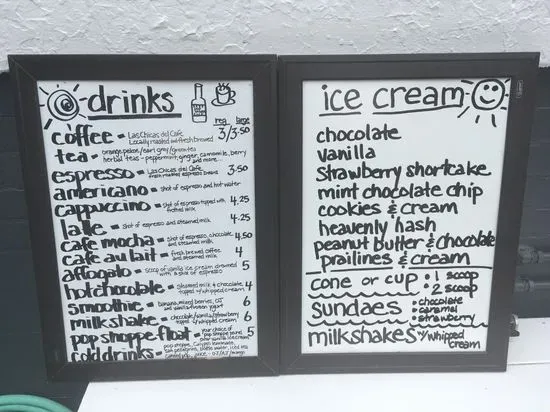 drinks
reg large
coffee - Las Chicas del Cafe 3/3.50
Locally roasted and fresh brewed
tea - orange pekoe/earl grey/green tea
herbal teas - peppermint, ginger, camomile, berry
and more...
espresso - Las Chicas del Cafe 3.50
fresh roasted espresso beans
americano - shot of espresso and hot water
cappuccino - shot of espresso topped with 4.25
frothed milk
latte - shot of espresso and steamed milk 4.25
cafe mocha - shot of espresso, chocolate 4.50
and steamed milk
cafe au lait - fresh brewed coffee 4
and steamed milk
affogato - scoop of vanilla ice cream drowned 5
with a shot of espresso
hot chocolate - steamed milk & chocolate 4
topped w/whipped cream
smoothie - banana, mixed berries, OJ 6
and vanilla frozen yogurt
milkshake - chocolate/vanilla/strawberry 6
topped w/whipped cream
pop shoppe float - your choice of 5
pop shoppe
vanilla ice cream
cold drinks - pop shoppe,
iced tea
ice cream
chocolate
vanilla
strawberry shortcake
mint chocolate chip
cookies & cream
heavenly hash
peanut butter & chocolate
prailines & cream
cone or cup • 1 scoop
• 2 scoop
sundaes • chocolate
• caramel
• strawberry
milkshakes w/whipped
cream